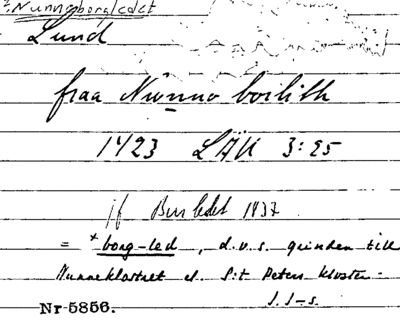 Nunneborgledet
Lund
fraa Nunno borlith
1423 LÄU 3:25
jf Burledet 1437
= *borg-led, d.v.s. grinden till
Nunneklostret el. S:t Peters kloster.
J. J-s.
Nr 5856.